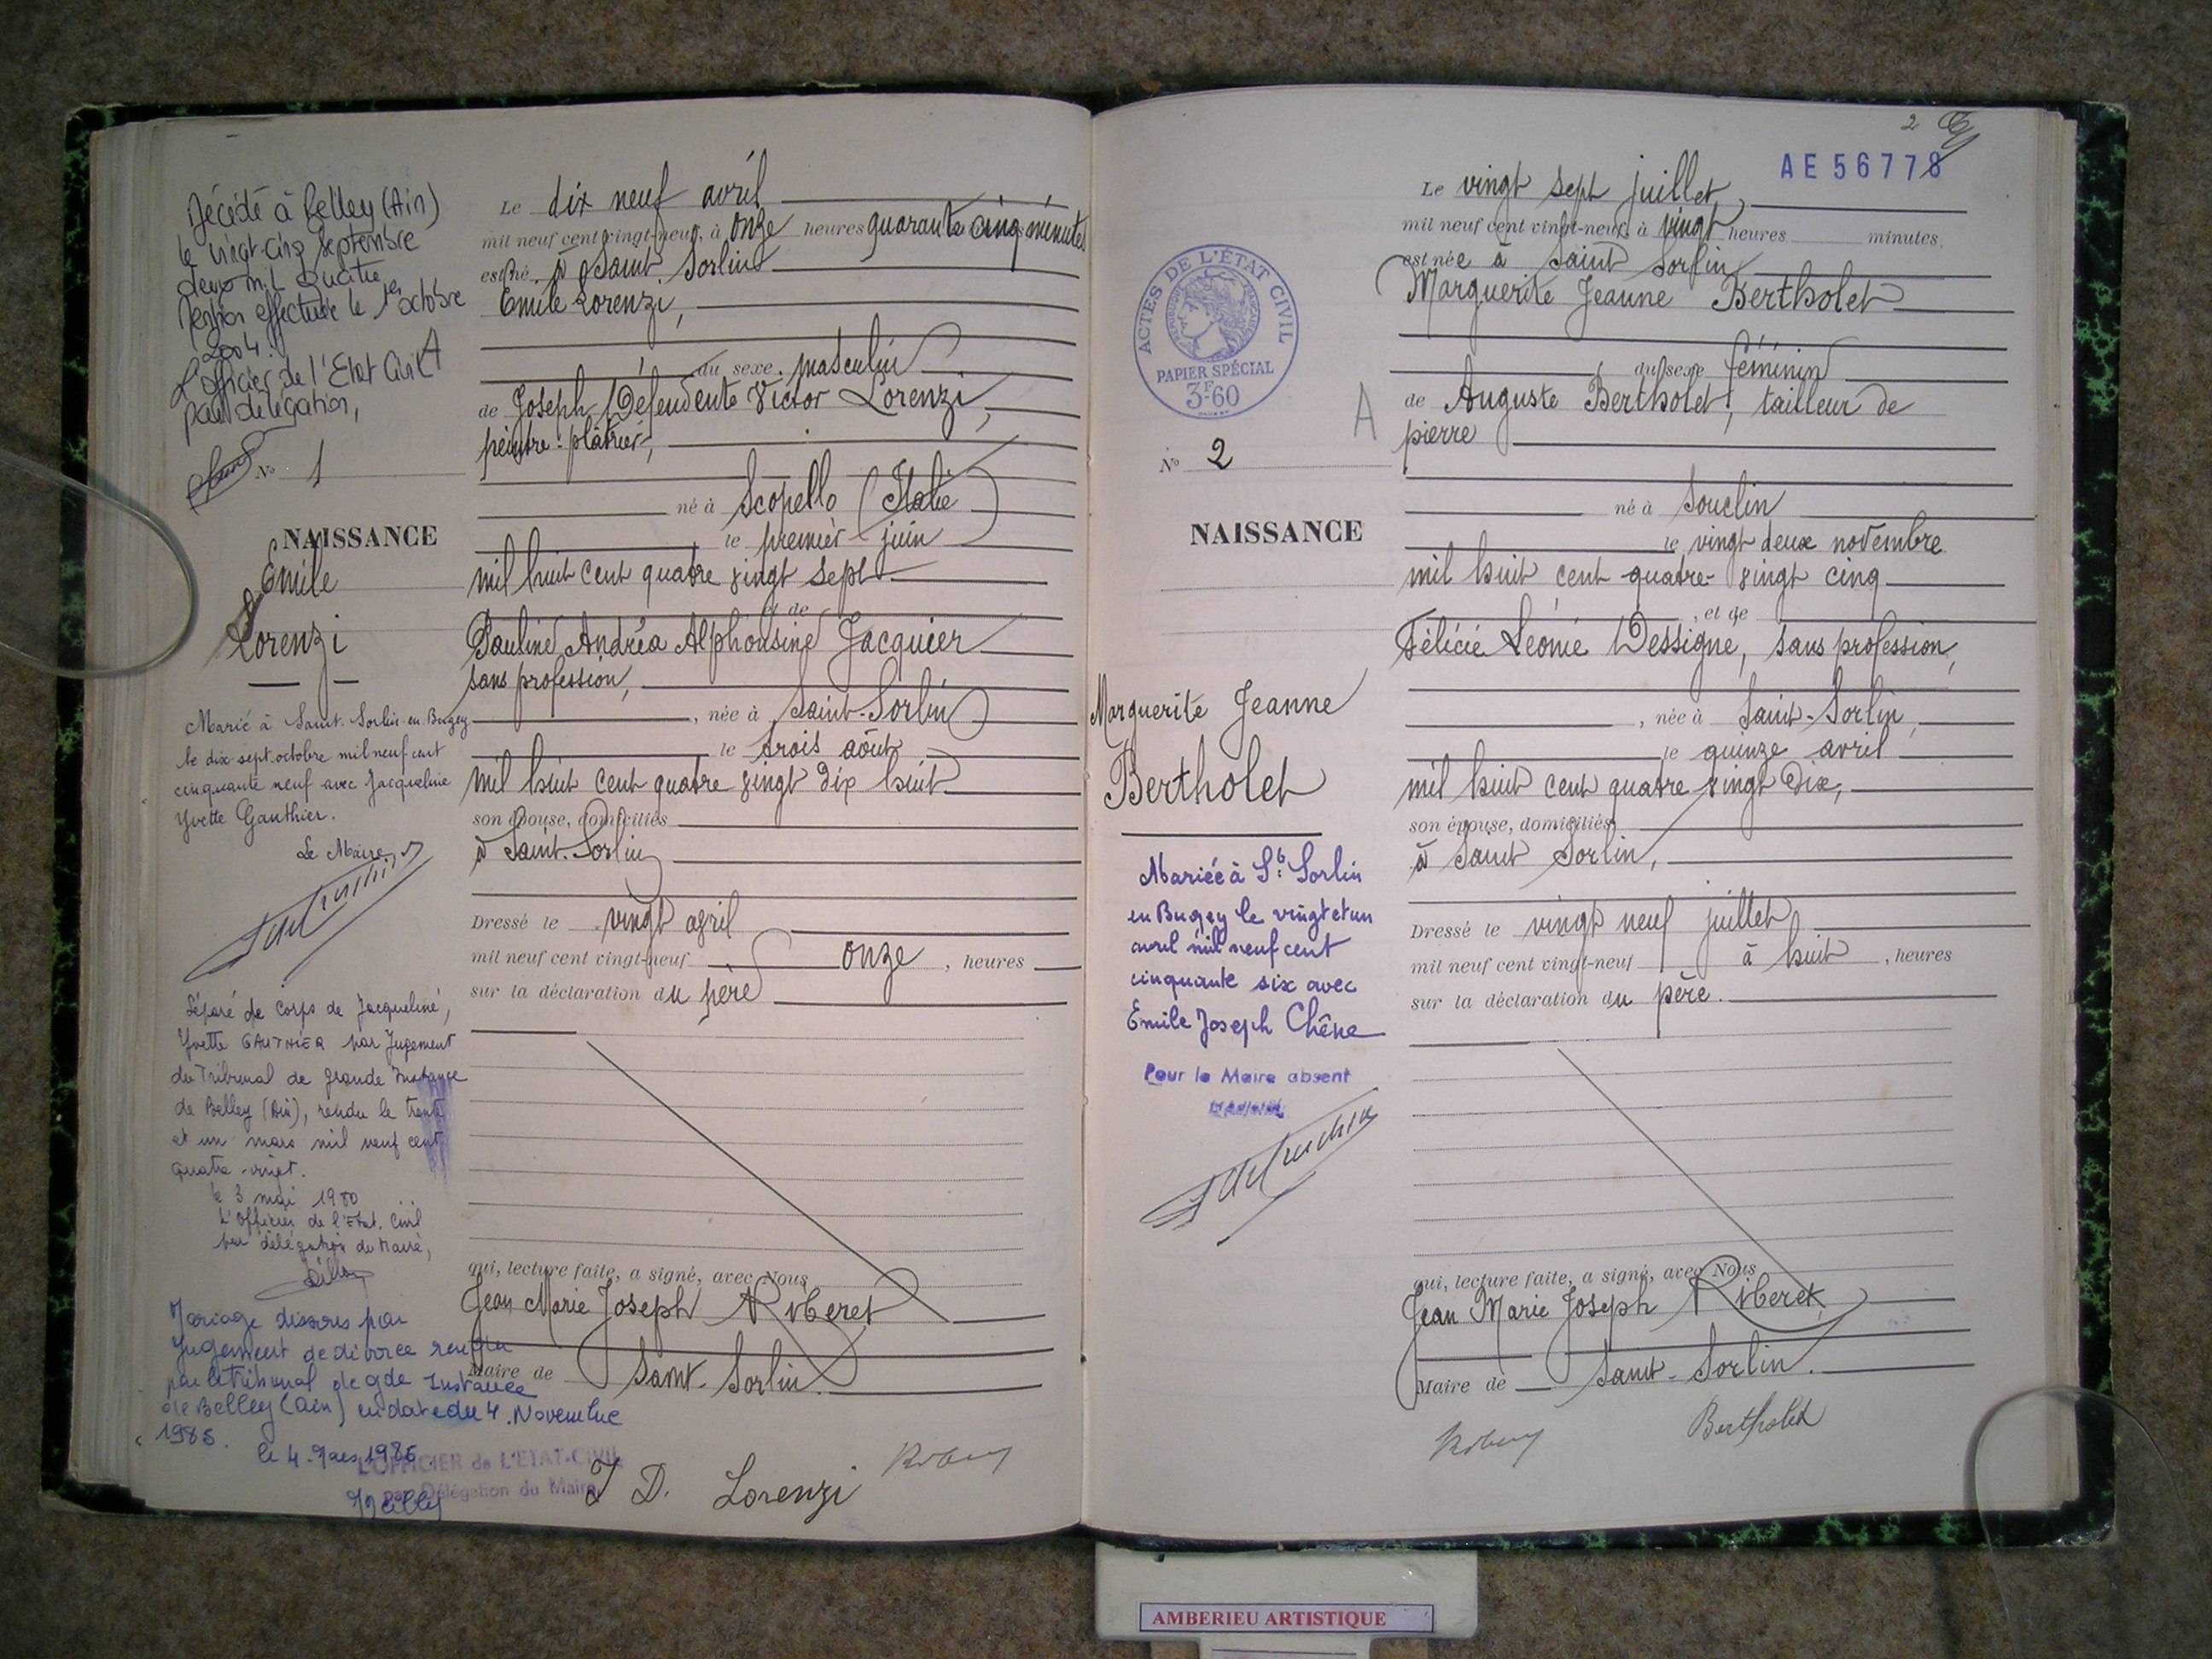 Décédé à Belley (Ain)
le vingt-cinq Septembre
deux mil quatre
Mention effectuée le 1er octobre
2004.
L'officier de l'Etat Civil
par délégation,
No 1
NAISSANCE
Emile
Lorenzi
Marié à Saint-Sorlin-en-Bugey
le dix-sept octobre mil neuf cent
cinquante neuf avec Jacqueline
Yvette Gauthier.
Le Maire,
Séparé de corps de Jacqueline,
Yvette GAUTHIER par Jugement
du Tribunal de grande Instance
de Belley (Ain), rendu le trente
et un mars mil neuf cent
quatre-vingt.
le 3 mai 1980
L'Officier de l'Etat. Civil
par délégation du Maire,
Mariage dissous par
Jugement de divorce rendu
par le Tribunal de gde Instance
de Belley (Ain) en date du 4. Novembre
1985.
le 4. Mars 1986
L'OFFICIER de L'ETAT-CIVIL
par Délégation du Maire,
Le dix neuf avril
mil neuf cent vingt-neuf, à onze heures quarante cinq minutes
est né à Saint Sorlin
Emile Lorenzi,
du sexe masculin
de Joseph Défendente Victor Lorenzi,
peintre-plâtrier,
né à Scopello (Italie)
le premier juin
mil huit cent quatre vingt sept
et de
Pauline Andréa Alphonsine Jacquier
sans profession,
, née à Saint-Sorlin
le trois août
mil huit cent quatre vingt dix huit
son épouse, domiciliés
à Saint-Sorlin
Dressé le vingt avril
mil neuf cent vingt-neuf onze , heures
sur la déclaration du père
qui, lecture faite, a signé, avec Nous
Jean Marie Joseph Riberet
Maire de Saint-Sorlin.
J D. Lorenzi
2
AE 56778
ACTES DE L'ÉTAT CIVIL
RÉPUBLIQUE FRANÇAISE
PAPIER SPÉCIAL
3F60
A
No 2
NAISSANCE
Marguerite Jeanne
Bertholet
Mariée à St Sorlin
en Bugey le vingt et un
avril mil neuf cent
cinquante six avec
Emile Joseph Chêne
Pour le Maire absent
Le vingt sept juillet,
mil neuf cent vingt-neuf, à vingt heures minutes,
est née à Saint Sorlin
Marguerite Jeanne Bertholet
du sexe féminin
de Auguste Bertholet, tailleur de
pierre
né à Souclin
le vingt deux novembre
mil huit cent quatre-vingt cinq
, et de
Félicie Léonie Dessigne, sans profession,
, née à Saint-Sorlin,
le quinze avril
mil huit cent quatre vingt dix,
son épouse, domiciliés
à Saint Sorlin,
Dressé le vingt neuf juillet
mil neuf cent vingt-neuf à huit , heures
sur la déclaration du père.
qui, lecture faite, a signé, avec Nous
Jean Marie Joseph Riberet
Maire de Saint-Sorlin.
Bertholet
AMBERIEU ARTISTIQUE